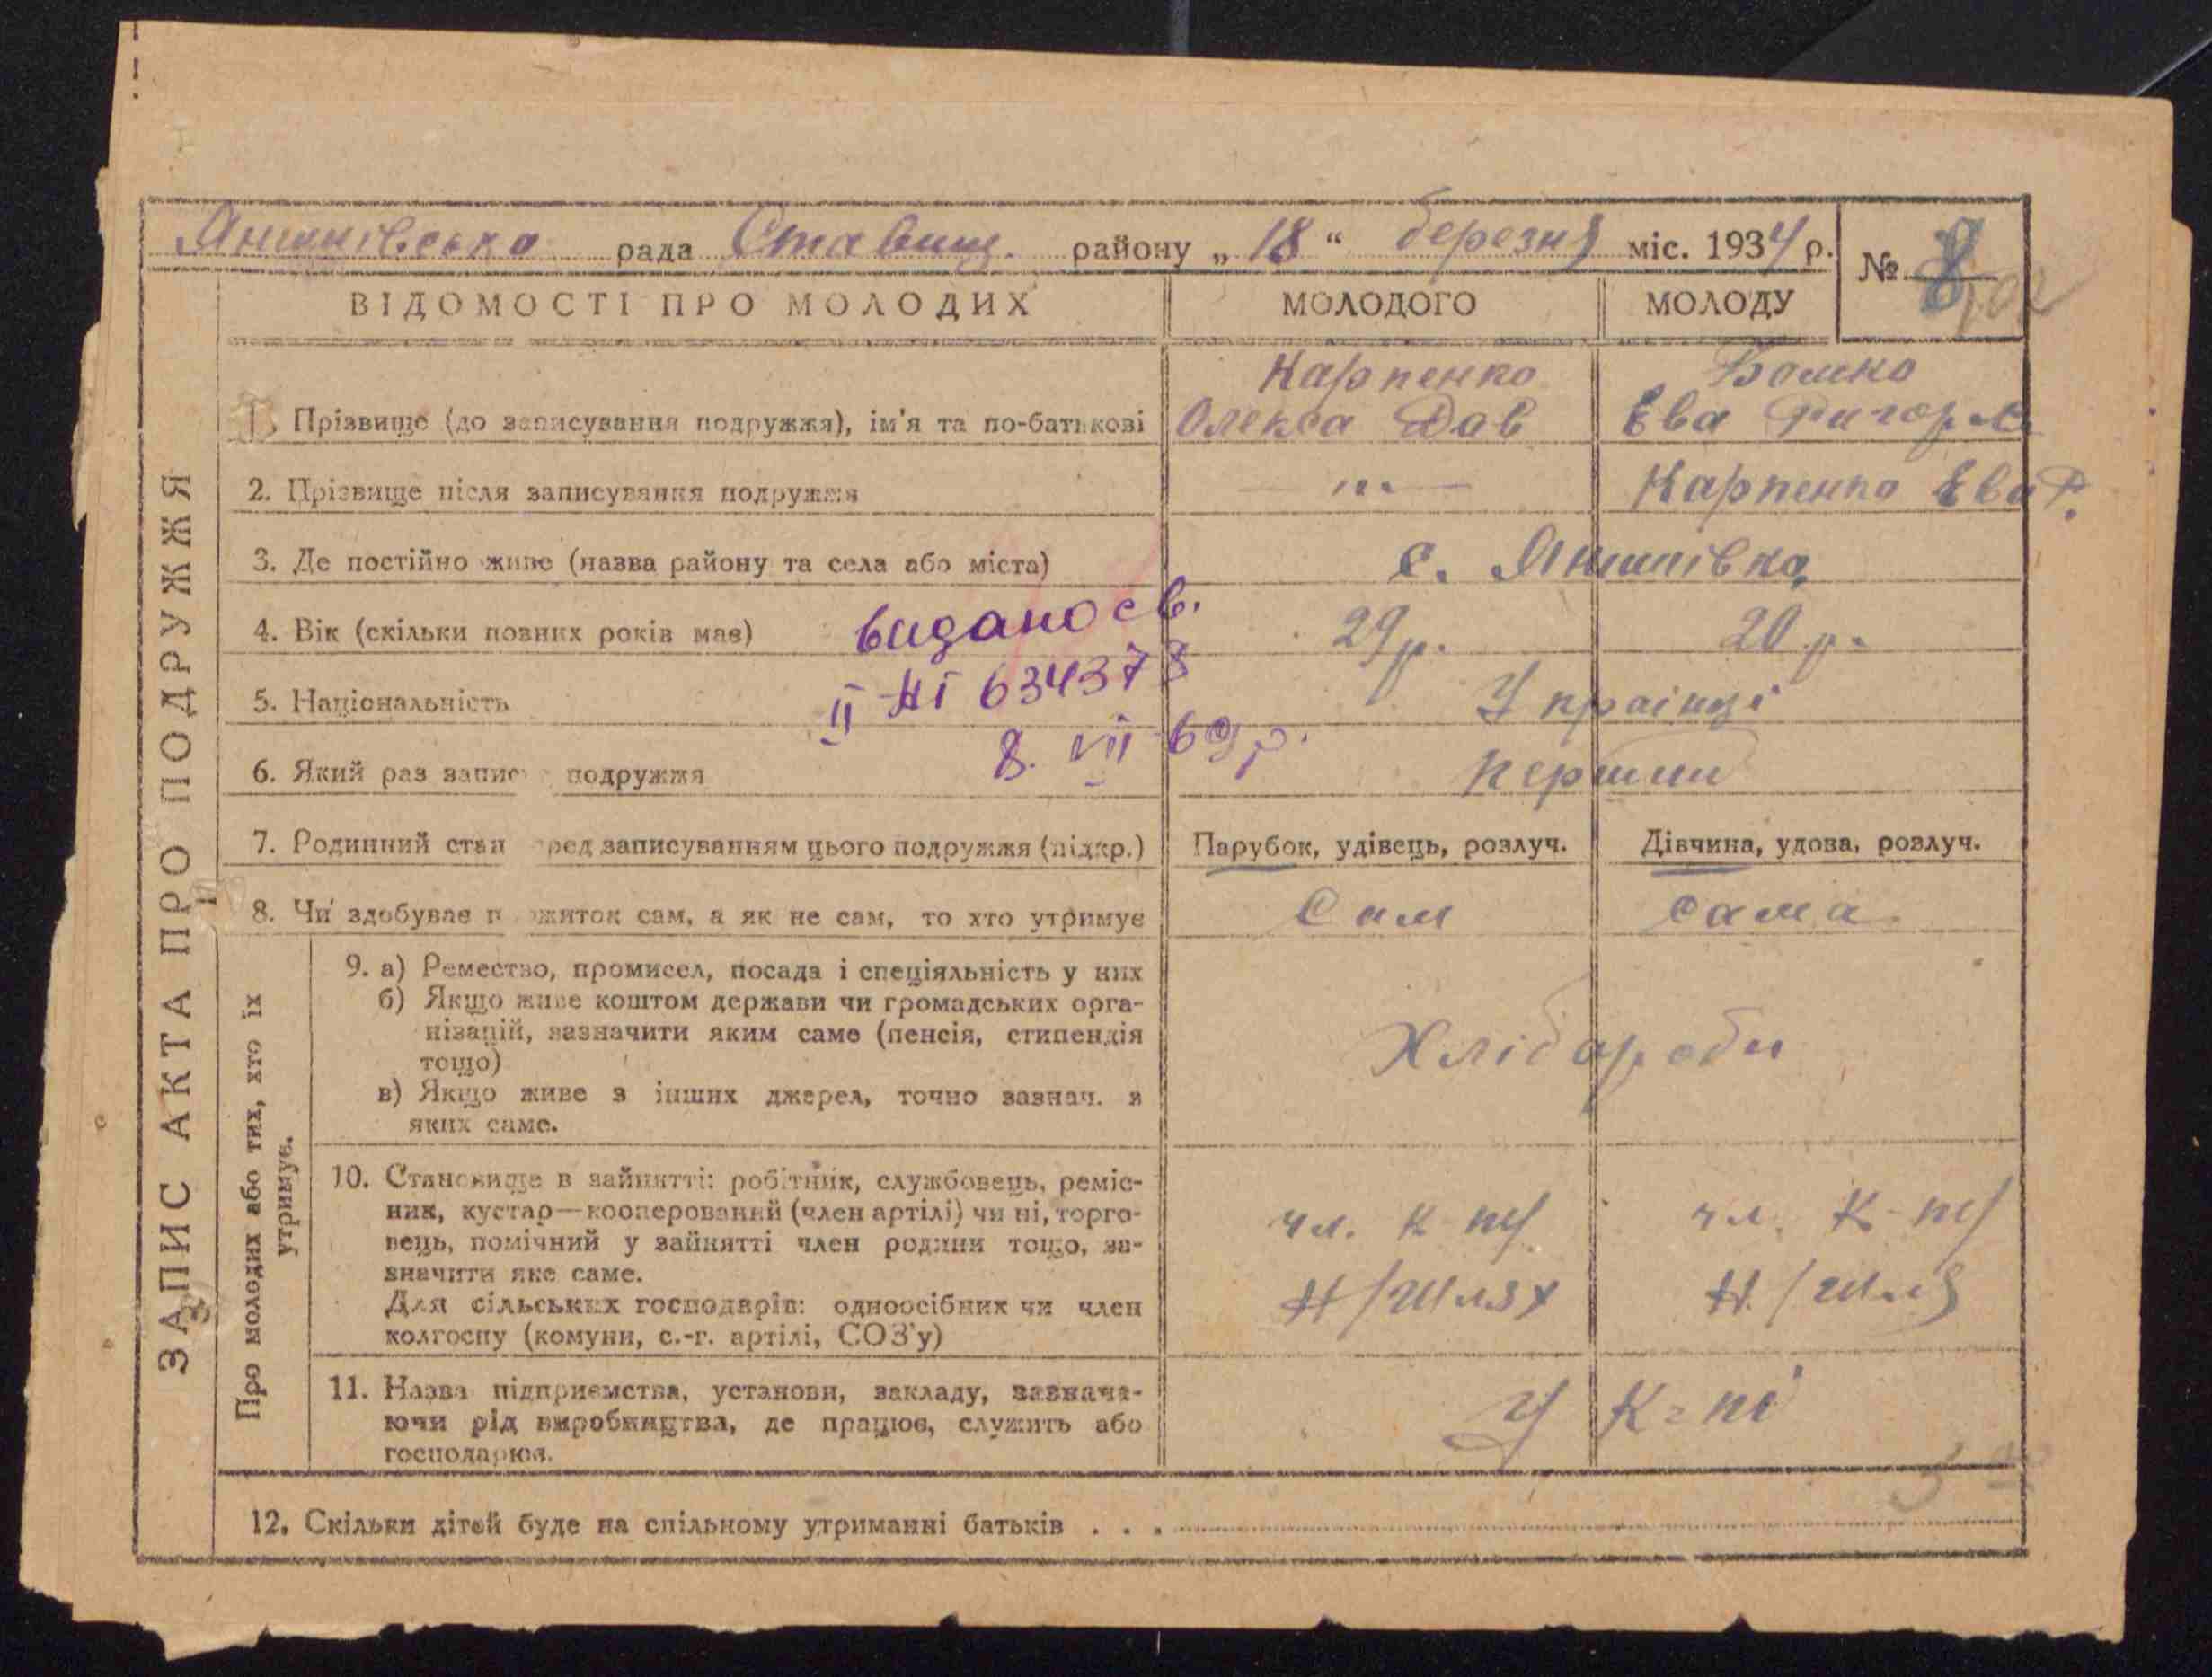 Янишівська рада Ставищ. району „18“ березня міс. 1934 р.
№ 8
ВІДОМОСТІ ПРО МОЛОДИХ
МОЛОДОГО
МОЛОДУ
ЗАПИС АКТА ПРО ПОДРУЖЖЯ
1. Прізвище (до записування подружжя), ім'я та по-батькові
Карпенко
Олекса Дав
Бошко
Ева Григор.
2. Прізвище після записування подружжя
— „ —
Карпенко Ева Г.
3. Де постійно живе (назва району та села або міста)
с. Янишівка
4. Вік (скільки повних років має)
29 р.
20 р.
видано св.
II-НІ 634378
8. VII 69 р.
5. Національність
Українці
6. Який раз записує подружжя
перший
7. Родинний стан перед записуванням цього подружжя (підкр.)
Парубок, удівець, розлуч.
Дівчина, удова, розлуч.
8. Чи здобуває пожиток сам, а як не сам, то хто утримує
Сам
сама
Про молодих або тих, хто їх
утримує.
9. а) Ремество, промисел, посада і спеціяльність у них
б) Якщо живе коштом держави чи громадських орга-
нізацій, зазначити яким саме (пенсія, стипендія
тощо)
в) Якщо живе з інших джерел, точно зазнач. з
яких саме.
Хлібороби
10. Становище в зайнятті: робітник, службовець, реміс-
ник, кустар—кооперований (член артілі) чи ні, торго-
вець, помічний у зайнятті член родини тощо, за-
значити яке саме.
Для сільських господарів: одноосібник чи член
колгоспу (комуни, с.-г. артілі, СОЗ'у)
чл. к-пу
Н/Шлях
чл. К-пу
Н/Шля
11. Назва підприємства, установи, закладу, зазнача-
ючи рід виробництва, де працює, служить або
господарює.
У К-пі
12. Скільки дітей буде на спільному утриманні батьків . . .